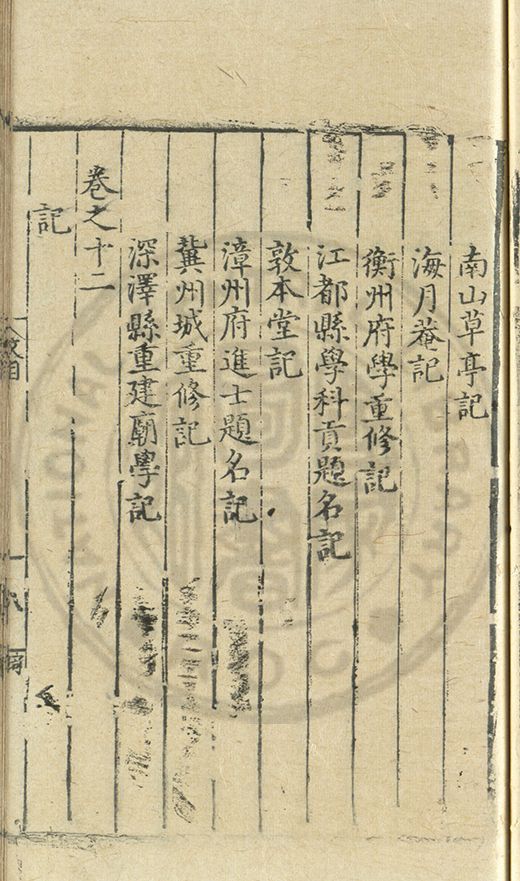 南山草亭記
海月菴記
衡州府學重修記
江都縣學科貢題名記
敦本堂記
漳州府進士題名記
冀州城重修記
深澤縣重建廟學記
卷之十二
記